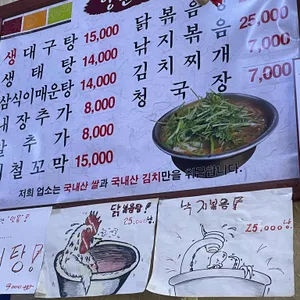 생대구탕 15,000
생태탕 14,000
삼식이매운탕 14,000
내장추가 8,000
알추가 8,000
철꼬막 15,000
닭볶음탕
낙지볶음 25,000
김치찌개 7,000
청국장 7,000
저희 업소는 국내산 쌀과 국내산 김치만을 취급합니다.
닭볶음탕!
25,000냥
낙지볶음!
25,000냥
탕!
9,000냥